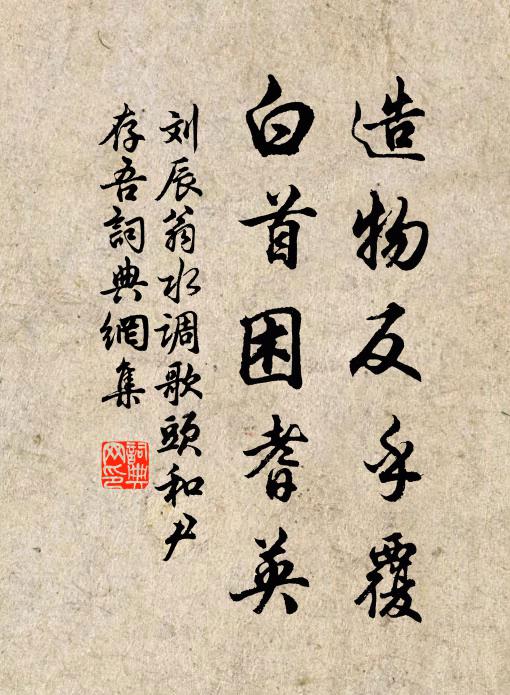 造物反手覆
白首困耆英
刘辰翁水调歌頭和尹
存吾詞典網集
詞典网印